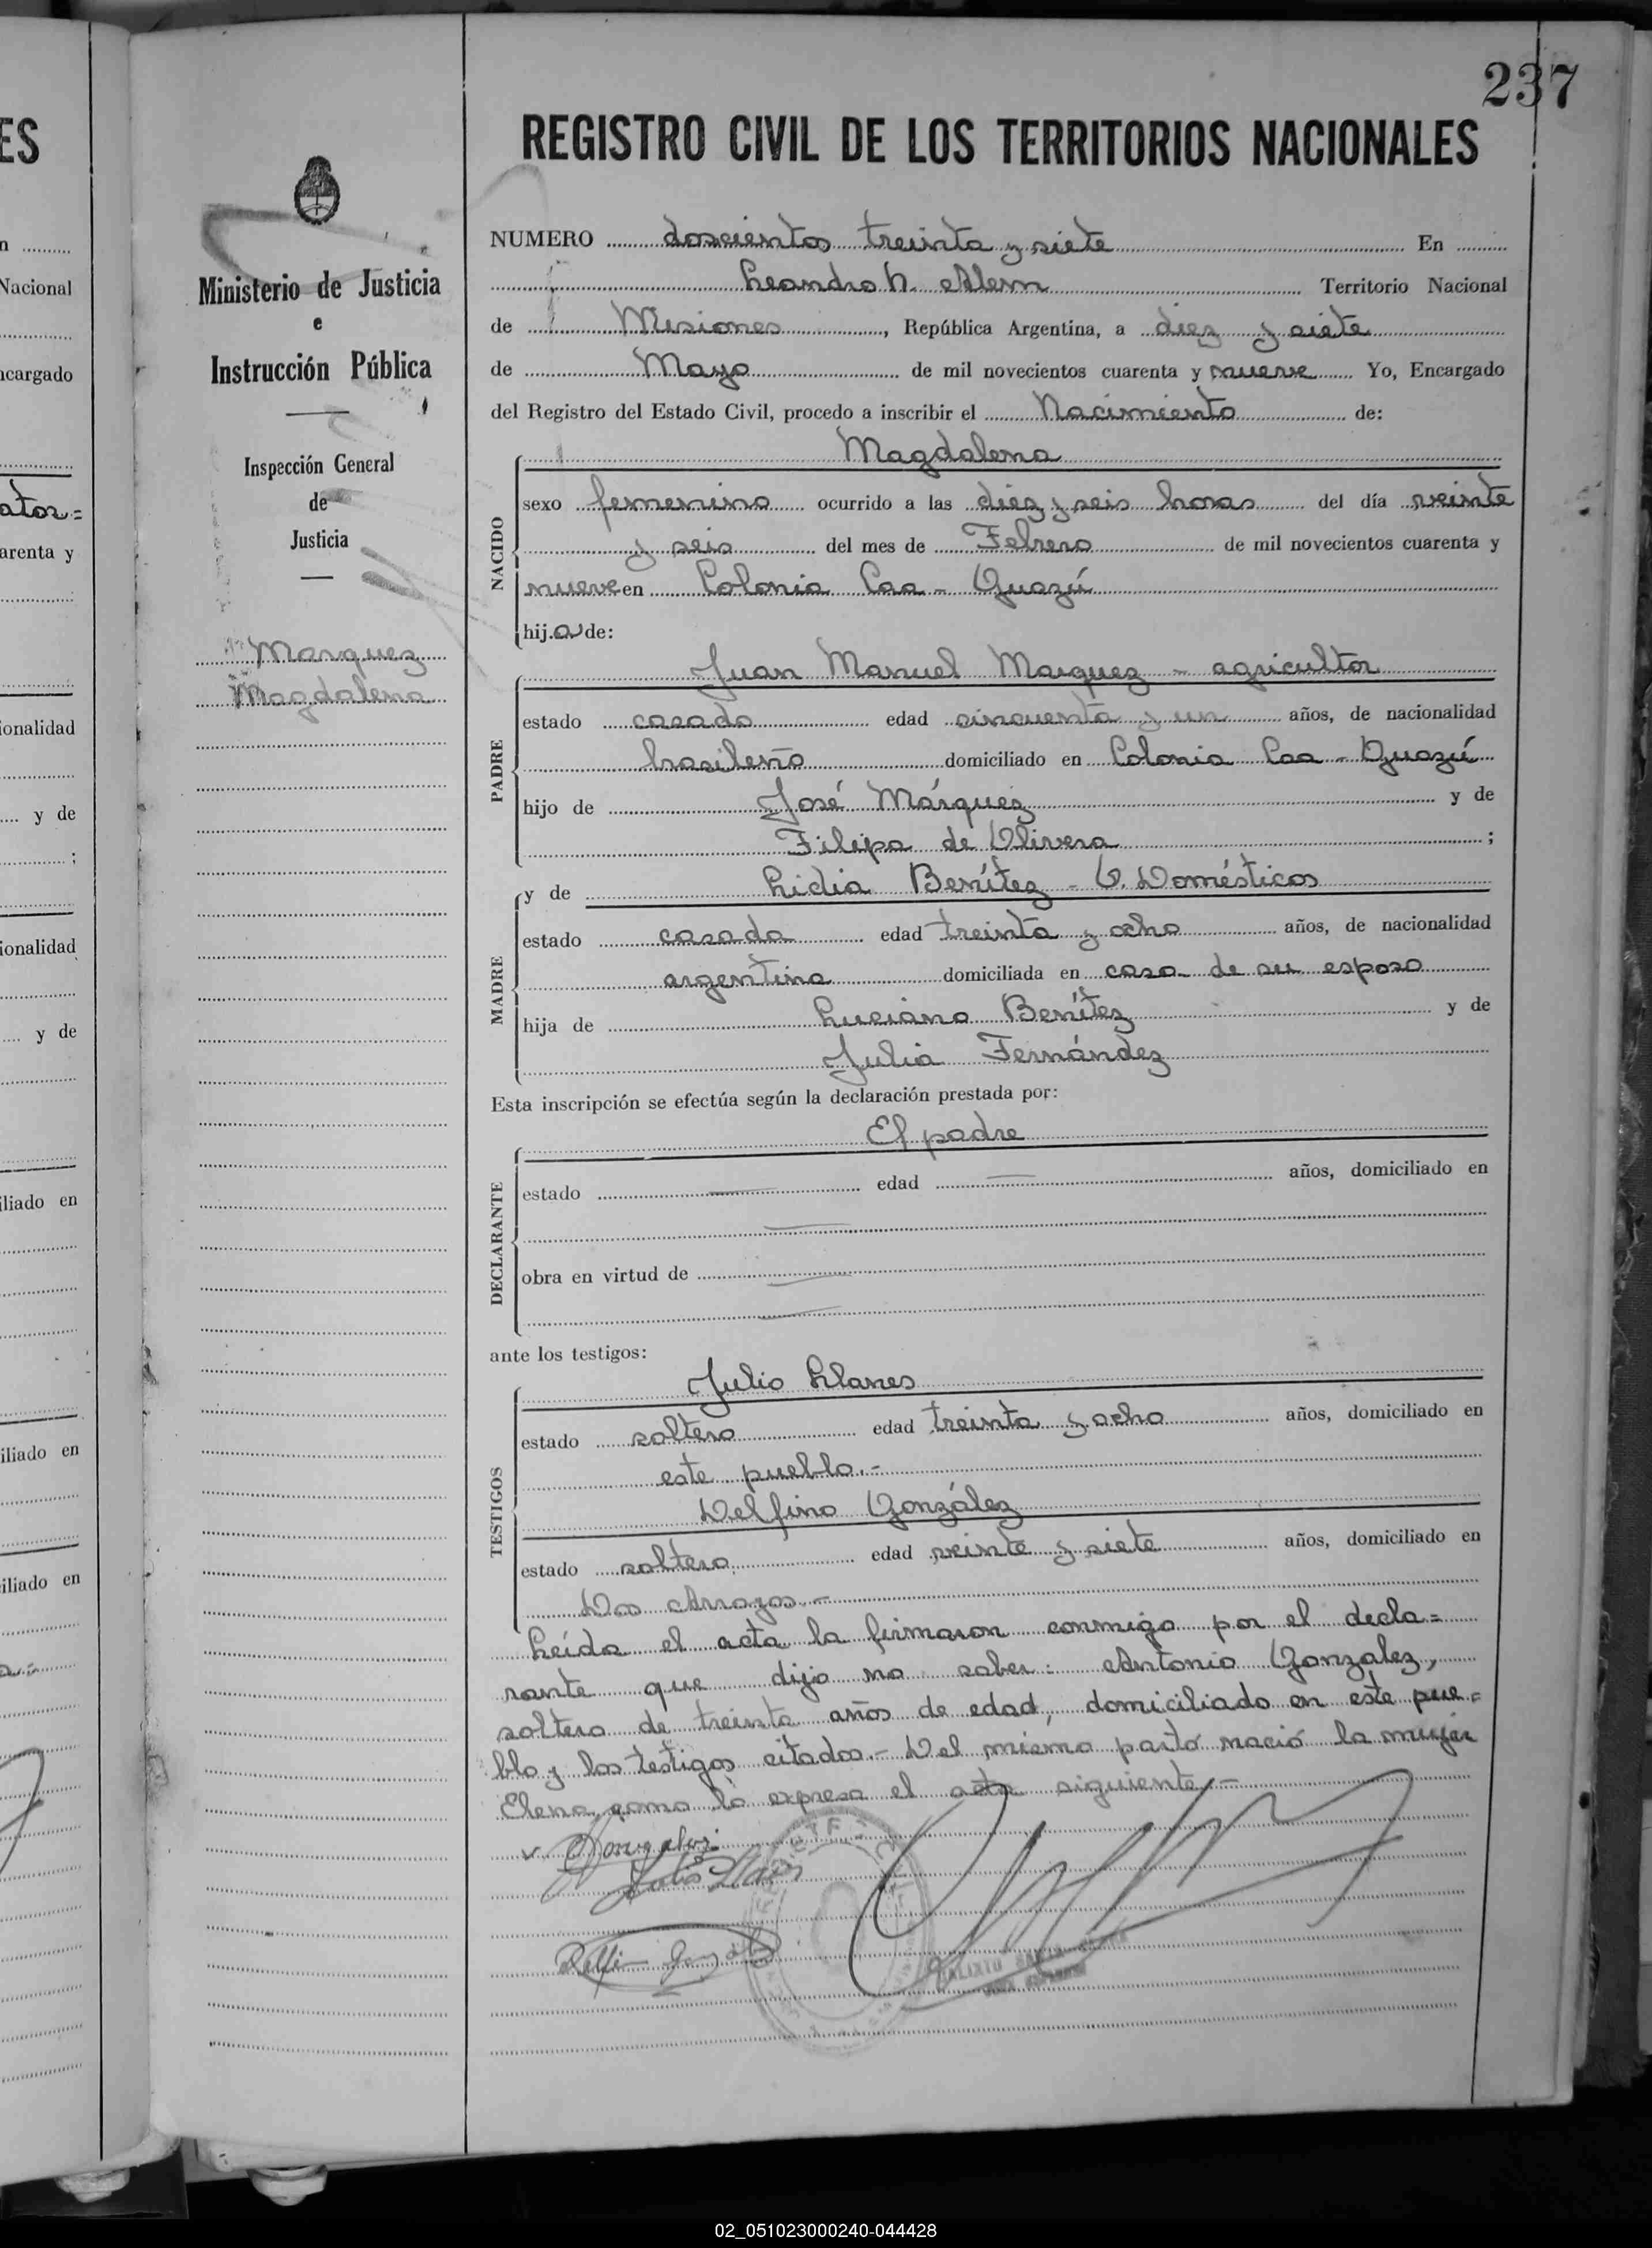 237
REGISTRO CIVIL DE LOS TERRITORIOS NACIONALES
Ministerio de Justicia
e
Instrucción Pública
Inspección General
de
Justicia
Marquez
Magdalena
NUMERO doscientos treinta y siete En
Leandro N. Alem Territorio Nacional
de Misiones, República Argentina, a diez y siete
de Mayo de mil novecientos cuarenta y nueve Yo, Encargado
del Registro del Estado Civil, procedo a inscribir el Nacimiento de:
NACIDO
Magdalena
sexo femenino ocurrido a las diez y seis horas del día veinte
y seis del mes de Febrero de mil novecientos cuarenta y
nueve en Colonia Caa - Guazú
hija de:
PADRE
Juan Manuel Marquez - agricultor
estado casado edad cincuenta y un años, de nacionalidad
brasileño domiciliado en Colonia Caa - Guazú
hijo de José Márquez y de
Filipa de Olivera ;
MADRE
y de Lidia Benítez - Q. Domésticos
estado casada edad treinta y ocho años, de nacionalidad
argentina domiciliada en casa de su esposo
hija de Luciano Benítez y de
Julia Fernández
Esta inscripción se efectúa según la declaración prestada por:
DECLARANTE
El padre
estado — edad — años, domiciliado en
—
obra en virtud de —
—
ante los testigos:
TESTIGOS
Julio Llanes
estado soltero edad treinta y ocho años, domiciliado en
este pueblo.-
Delfino González
estado soltero edad veinte y siete años, domiciliado en
Dos Arroyos.-
Leída el acta la firmaron conmigo por el decla=
rante que dijo no saber: Antonio Gonzalez,
soltero de treinta años de edad, domiciliado en este pue=
blo y los testigos citados.- Del mismo parto nació la mujer
Elena como lo expresa el acta siguiente.-
02_051023000240-044428
ES
n
Nacional
ncargado
ator=
arenta y
ionalidad
y de
;
ionalidad
y de
iliado en
iliado en
iliado en